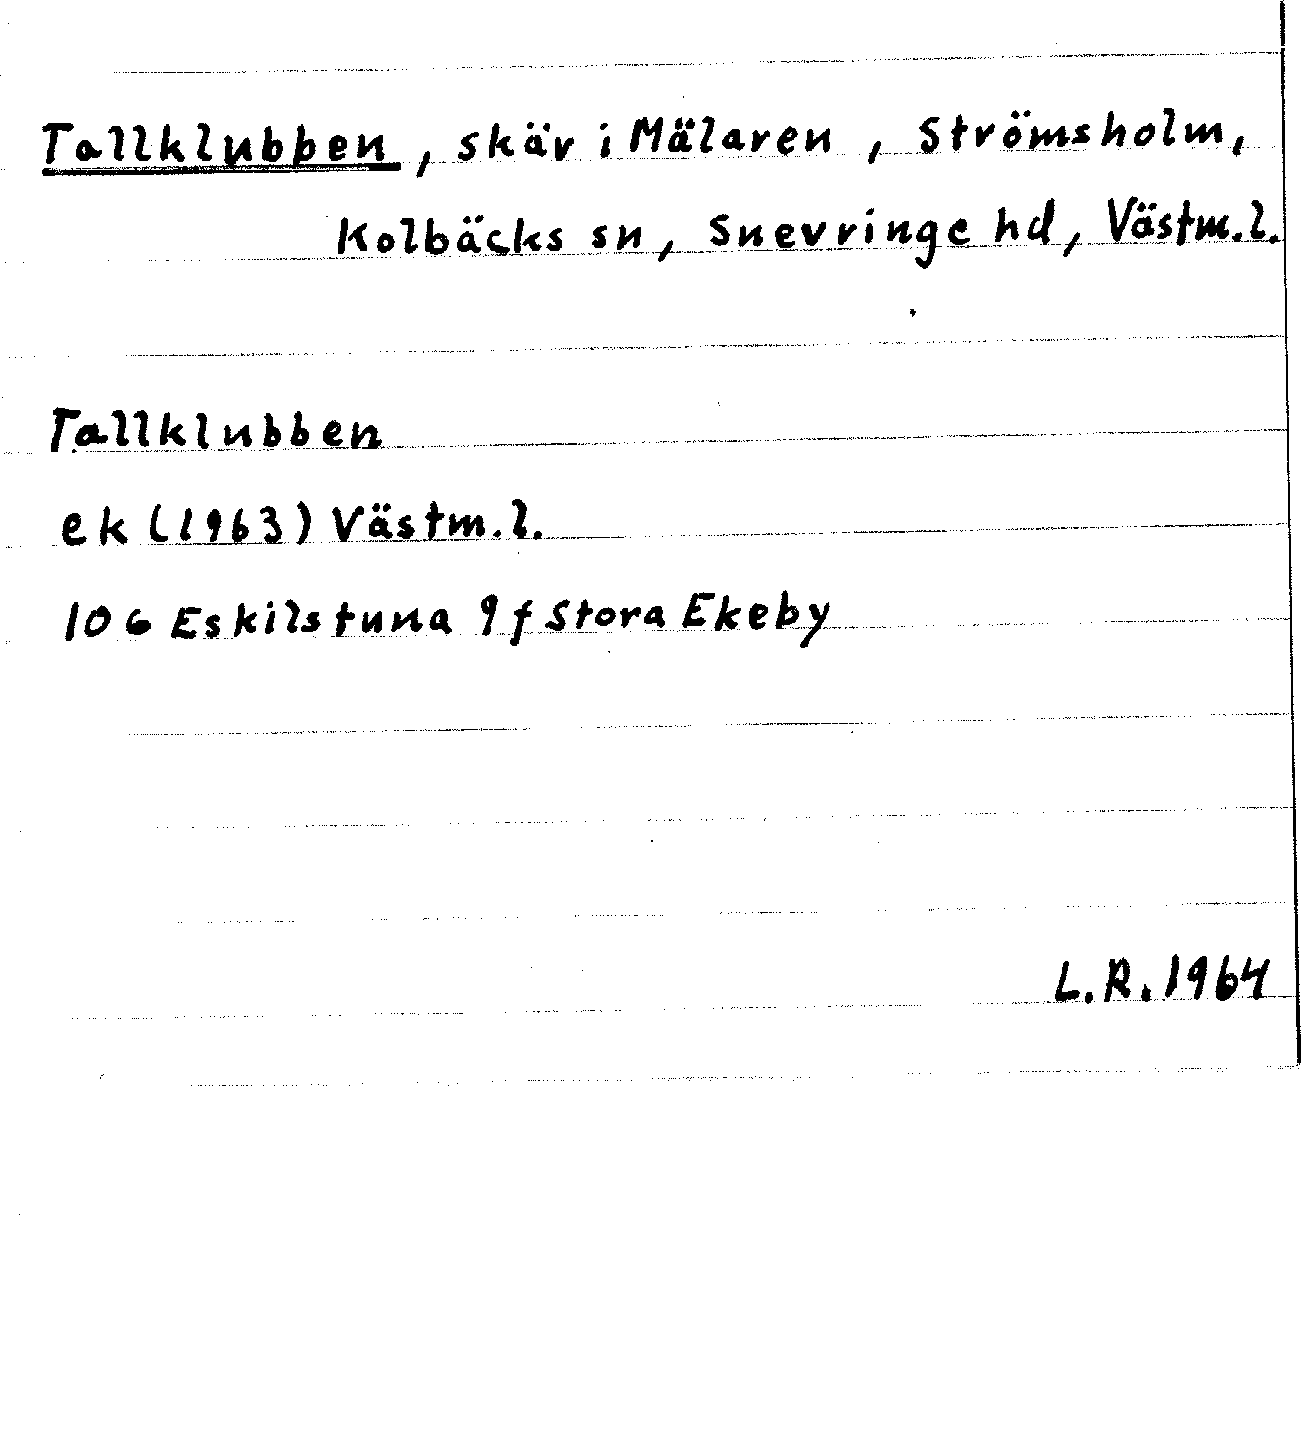 Tallklubben, skär i Mälaren, Strömsholm,
Kolbäcks sn, Snevringe hd, Västm.l.
Tallklubben
ek (1963) Västm.l.
10 G Eskilstuna 9f Stora Ekeby
L.R. 1964